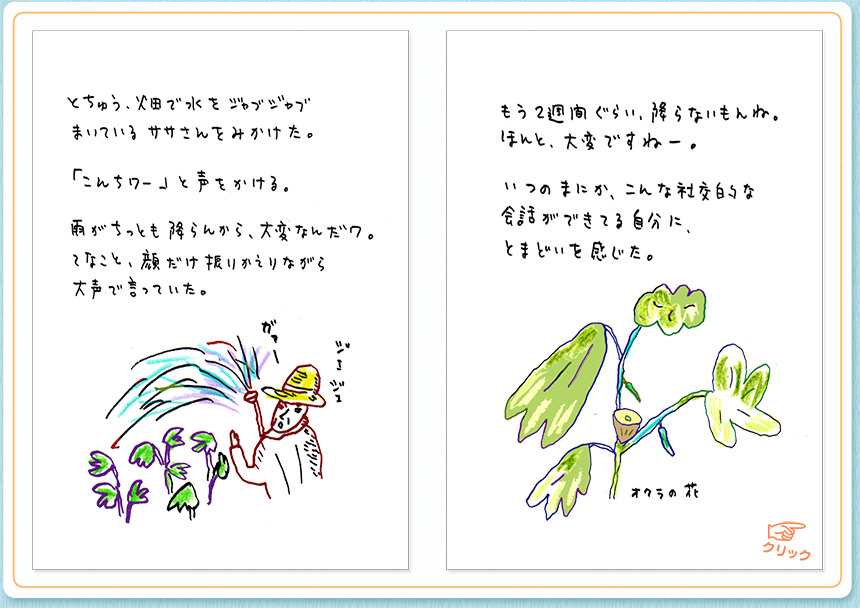 とちゅう、畑で水をジャブジャブ
まいているササさんをみかけた。
「こんちワー」と声をかける。
雨がちっとも降らんから、大変なんだワ。
てなこと、顔だけ振りかえりながら
大声で言っていた。
ガァー
ジョ
ジョ
もう2週間ぐらい、降らないもんね。
ほんと、大変ですねー。
いつのまにか、こんな社交的な
会話ができてる自分に、
とまどいを感じた。
オクラの花
クリック